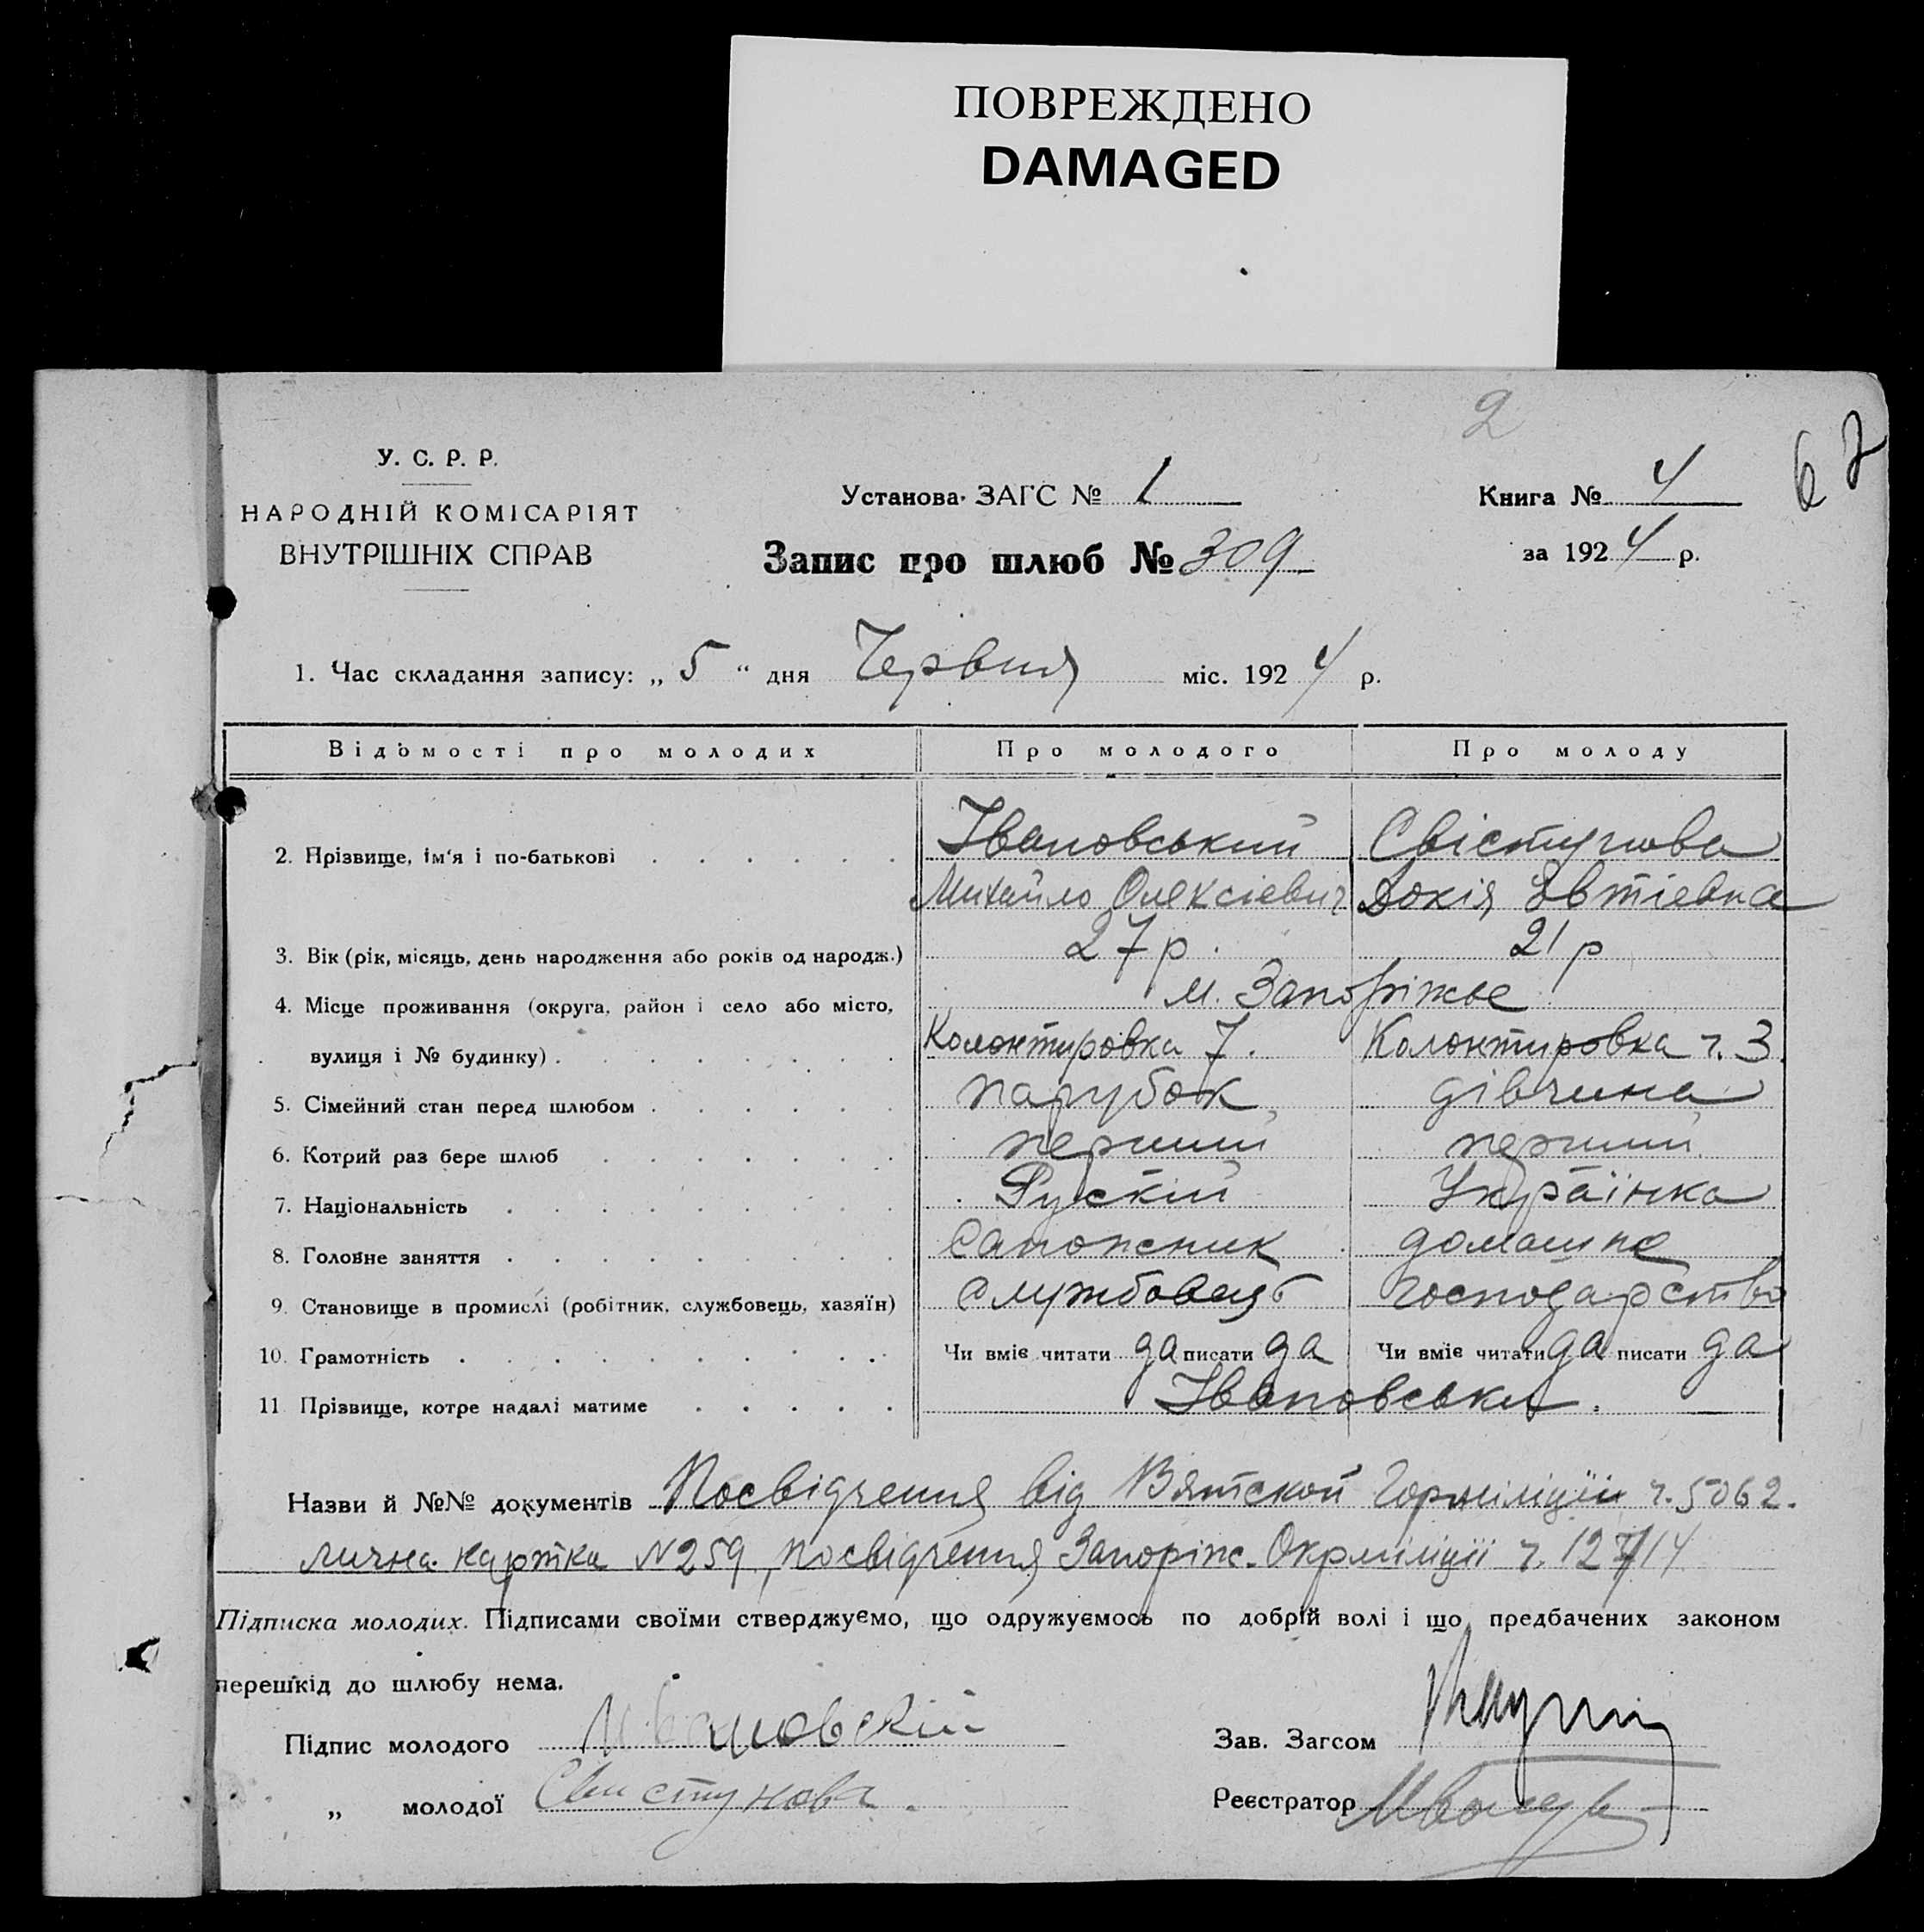 ПОВРЕЖДЕНО
DAMAGED
2
67
У. С. Р. Р.
НАРОДНІЙ КОМІСАРІЯТ
ВНУТРІШНІХ СПРАВ
Установа ЗАГС № 1
Книга № 4
за 1924 р.
Запис про шлюб № 309
1. Час складання запису: „ 5 “ дня Червня міс. 1924 р.
Відомості про молодих Про молодого Про молоду
2. Прізвище, ім'я і по-батькові Івановський Свістунова
Михайло Олексієвич Докія Євтіевна
3. Вік (рік, місяць, день народження або років од народж.) 27 р. 21 р
4. Місце проживання (округа, район і село або місто, м. Запоріжье
вулиця і № будинку) Колонтировка 7. Колонтировка ч. 3
5. Сімейний стан перед шлюбом парубок дівчина
6. Котрий раз бере шлюб перший перший
7. Національність Рускій Українка
8. Головне заняття сапожник домашнє
9. Становище в промислі (робітник, службовець, хазяїн) службовець господарство
10. Грамотність Чи вміє читати да писати да Чи вміє читати да писати да
11 Прізвище, котре надалі матиме Івановськи.
Назви й №№ документів Посвідчення від Вятской Горміліціи ч. 5062.
лична картка N 259, посвідчення Запоріж. Окрміліції ч. 127/14
Підписка молодих. Підписами своїми стверджуємо, що одружуємось по добрій волі і що предбачених законом
перешкід до шлюбу нема.
Підпис молодого Ивановский
Зав. Загсом
„ молодої Свистунова.
Реєстратор